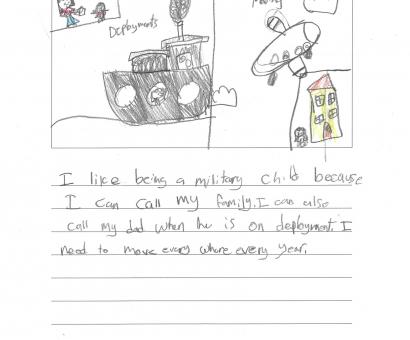 Deployments
Moving
I like being a military child because
I can call my family. I can also
call my dad when he is on deployment. I
need to move every where every year.